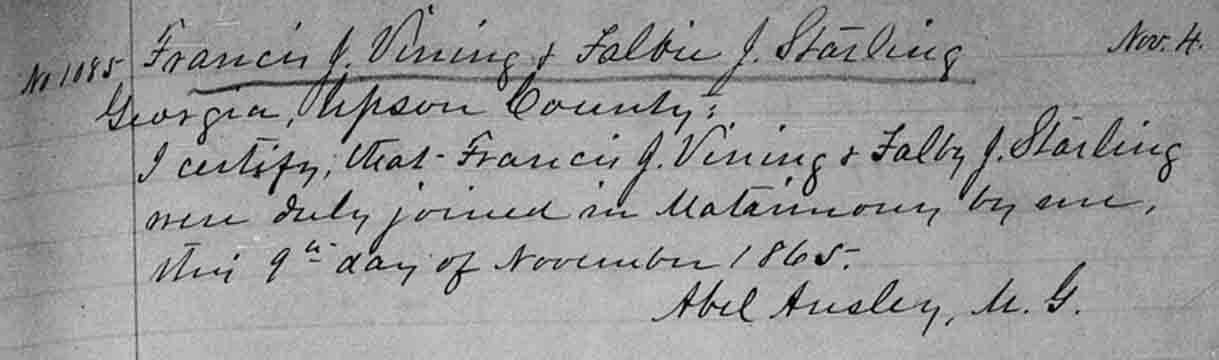 Francis J. Vining & Falbie J. Starling Nov. 4.
No 1085
Georgia, Upson County;
I certify, that Francis J. Vining & Falby J. Starling
were duly joined in Matrimony by me,
this 9th day of November 1865.
Abel Ansley, M. G.